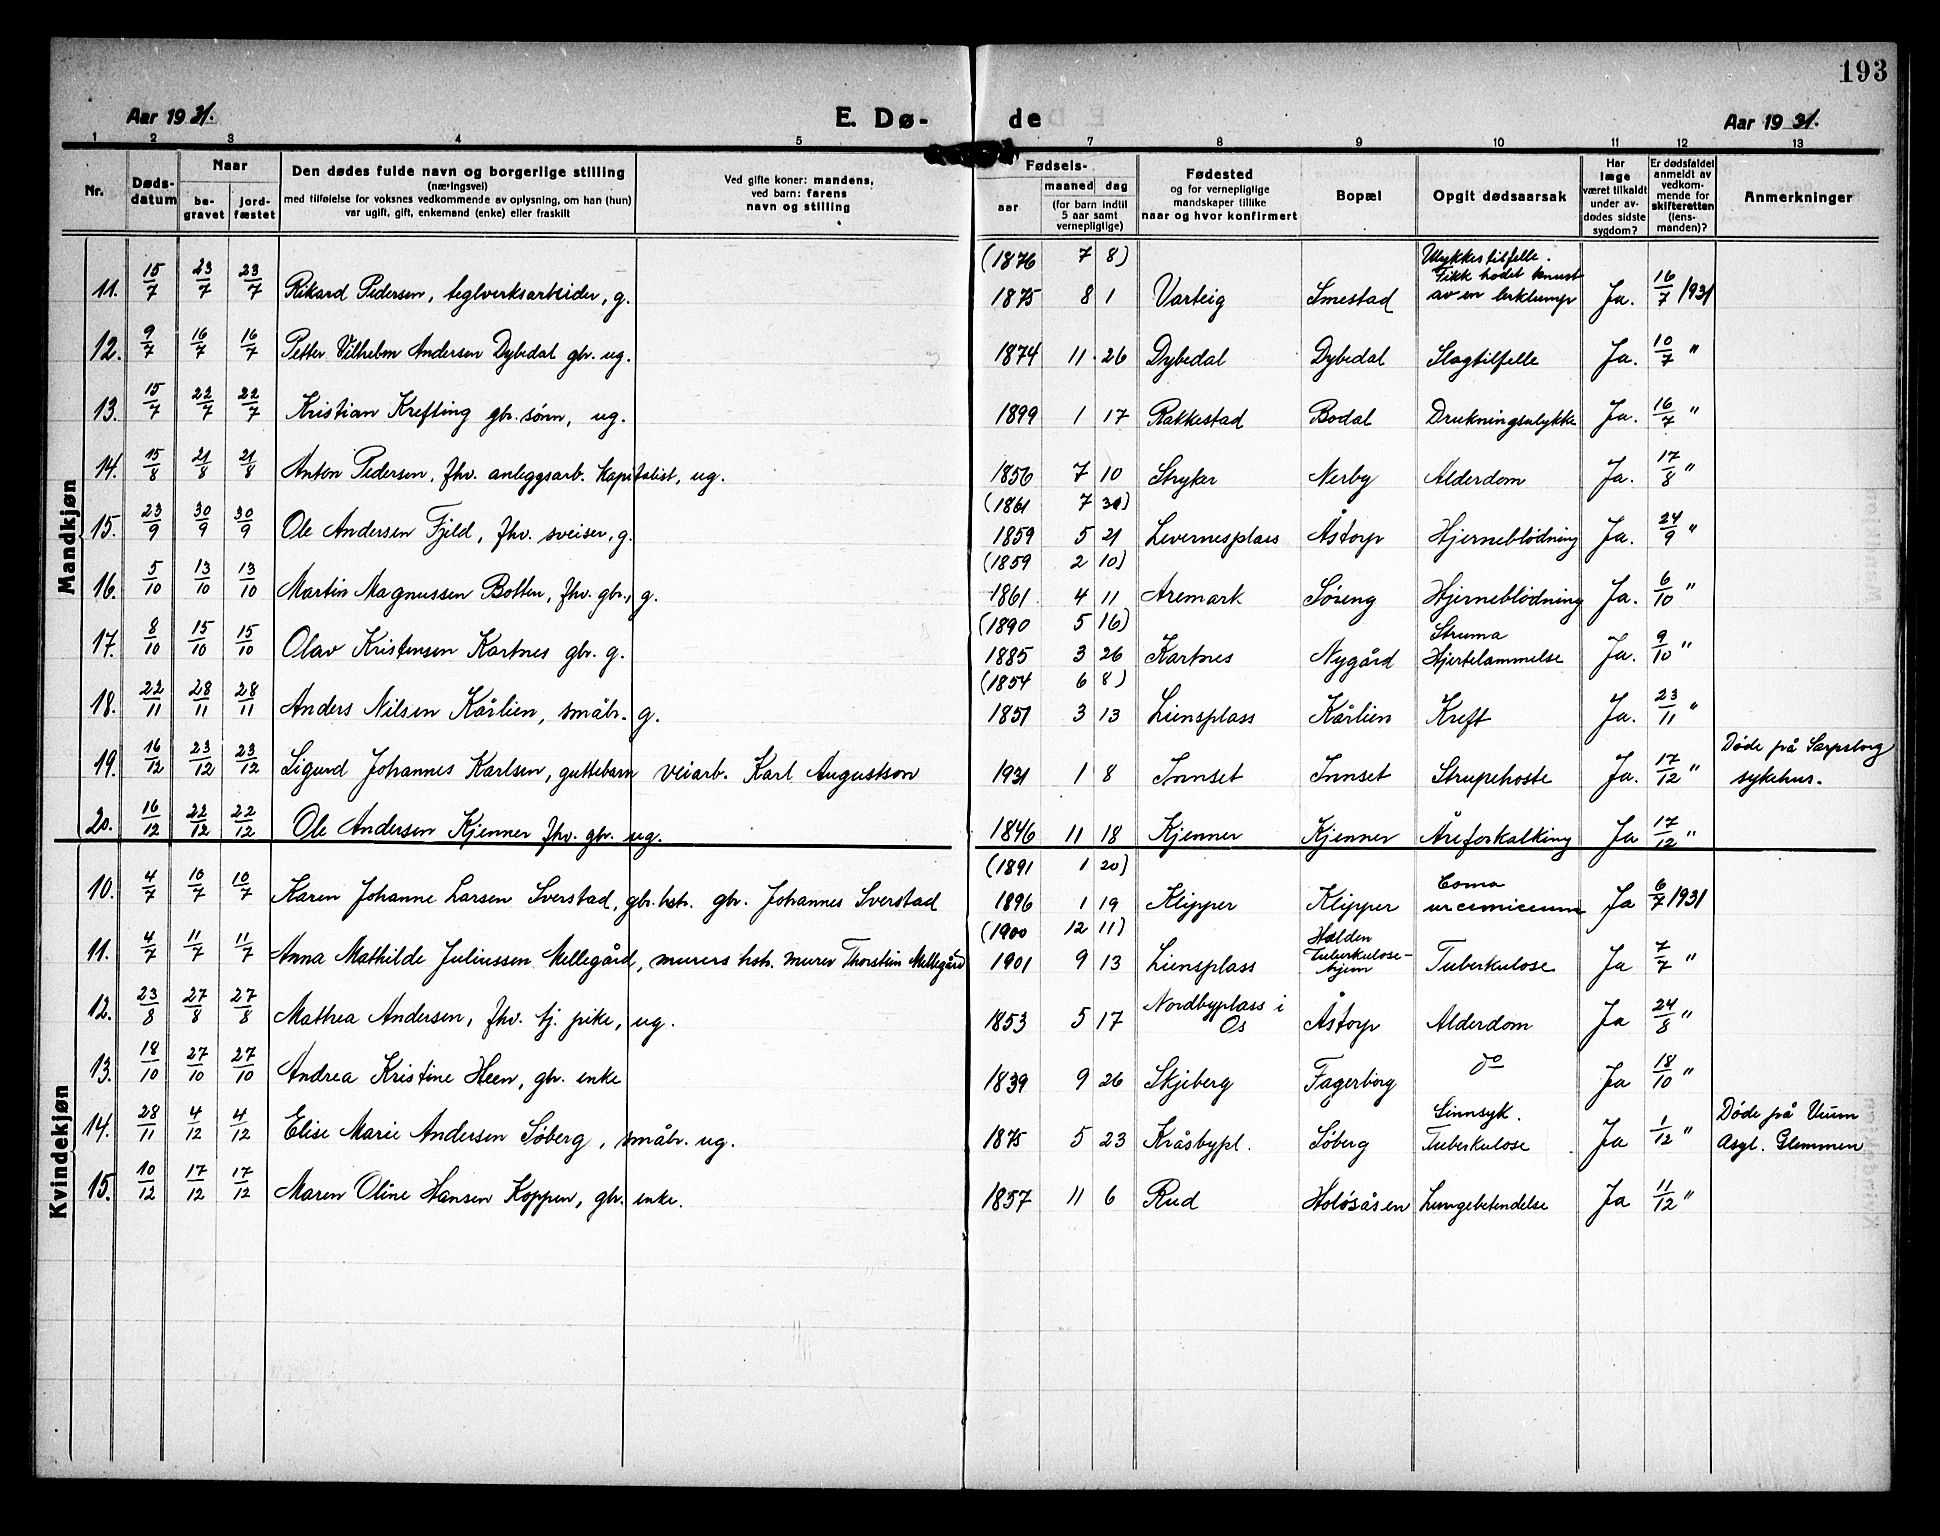 193
Aar 1931. E. Dø- de Aar 1931.
1 2 3 4 5 7 8 9 10 11 12 13
Nr. Døds-datum Naar begravet jordfæstet Den dødes fulde navn og borgerlige stilling (næringsvei) med tilføielse for voksnes vedkommende av oplysning, om han (hun) var ugift, gift, enkemand (enke) eller fraskilt Ved gifte koner: mandens, ved barn: farens navn og stilling Fødsels- aar maaned dag (for barn indtil 5 aar samt vernepligtige) Fødested og for vernepligtige mandskaper tillike naar og hvor konfirmert Bopæl Opgit dødsaarsak Har læge været tilkaldt under avdødes sidste sygdom? Er dødsfaldet anmeldt av vedkommende for skifteretten (lensmanden)? Anmerkninger
Mandkjøn
11. 15/7 23/7 23/7 Rikard Pedersen, teglverksarbeider, g. (1876 7 8) 1875 8 1 Varteig Smestad Ulykkestilfelle. Fikk hodet knust av en lerklump Ja. 16/7 1931
12. 9/7 16/7 16/7 Petter Vilhelm Andersen Dybedal gbr. ug. 1874 11 26 Dybedal Dybedal Slagtilfelle Ja. 10/7 "
13. 15/7 22/7 22/7 Kristian Krefting gbr. sønn, ug. 1899 1 17 Rakkestad Bodal Drukningsulykke Ja. 16/7 "
14. 15/8 21/8 21/8 Anton Pedersen, fhv. anleggsarb. kapitalist, ug. 1856 7 10 Stryker Nerby Alderdom Ja. 17/8 "
15. 23/9 30/9 30/9 Ole Andersen Fjeld, fhv. sveiser, g. (1861 7 31) 1859 5 21 Levernesplass Åstorp Hjerneblödning Ja. 24/9 "
16. 5/10 13/10 13/10 Martin Magnussen Botten, fhv. gbr., g. (1859 2 10) 1861 4 11 Aremark Söreng Hjerneblödning Ja. 6/10 "
17. 8/10 15/10 15/10 Olav Kristensen Kartnes gbr. g. (1890 5 16) 1885 3 26 Kartnes Nygård Struma Hjertelammelse Ja. 9/10 "
18. 22/11 28/11 28/11 Anders Nilsen Kårlien, småbr. g. (1854 6 8) 1851 3 13 Liensplass Kårlien Kreft Ja. 23/11 "
19. 16/12 23/12 23/12 Sigurd Johannes Karlsen, guttebarn veiarb. Karl Augustson 1931 1 8 Innset Innset Strupehoste Ja. 17/12 " Døde på Sarpsborg sykehus.
20. 16/12 22/12 22/12 Ole Andersen Kjenner fhv. gbr. ug. 1846 11 18 Kjenner Kjenner Åreforkalking Ja 17/12 "
Kvindekjøn
10. 4/7 10/7 10/7 Karen Johanne Larsen Sverstad, gbr. hstr. gbr. Johannes Sverstad (1891 1 20) 1896 1 19 Klipper Klipper Coma Ja 6/7 1931
11. 4/7 11/7 11/7 Anna Mathilde Juliussen Mellegård, murers hstr. murer Thorstein Mellegård (1900 12 11) 1901 9 13 Liensplass Halden Tuberkulosehjem Tuberkulose Ja 7/7 "
12. 23/8 27/8 27/8 Mathea Andersen, fhv. tj. pike, ug. 1853 5 17 Nordbyplass i Os Åstorp Alderdom Ja 24/8 "
13. 18/10 27/10 27/10 Andrea Kristine Heen, gbr. enke 1839 9 26 Skjeberg Fagerborg do Ja 18/10 "
14. 28/11 4/12 4/12 Elise Marie Andersen Söberg, småbr. ug. 1875 5 23 Kråsbypl. Söberg Sinnsyk. Tuberkulose Ja 1/12 " Døde på Veum Asyl. Glemmen
15. 10/12 17/12 17/12 Maren Oline Hansen Koppen, gbr. enke. 1857 11 6 Rud Holösåsen Lungebetendelse Ja 11/12 "